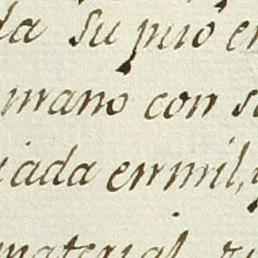 da su puro en
mano con su
iada enmil, y
material